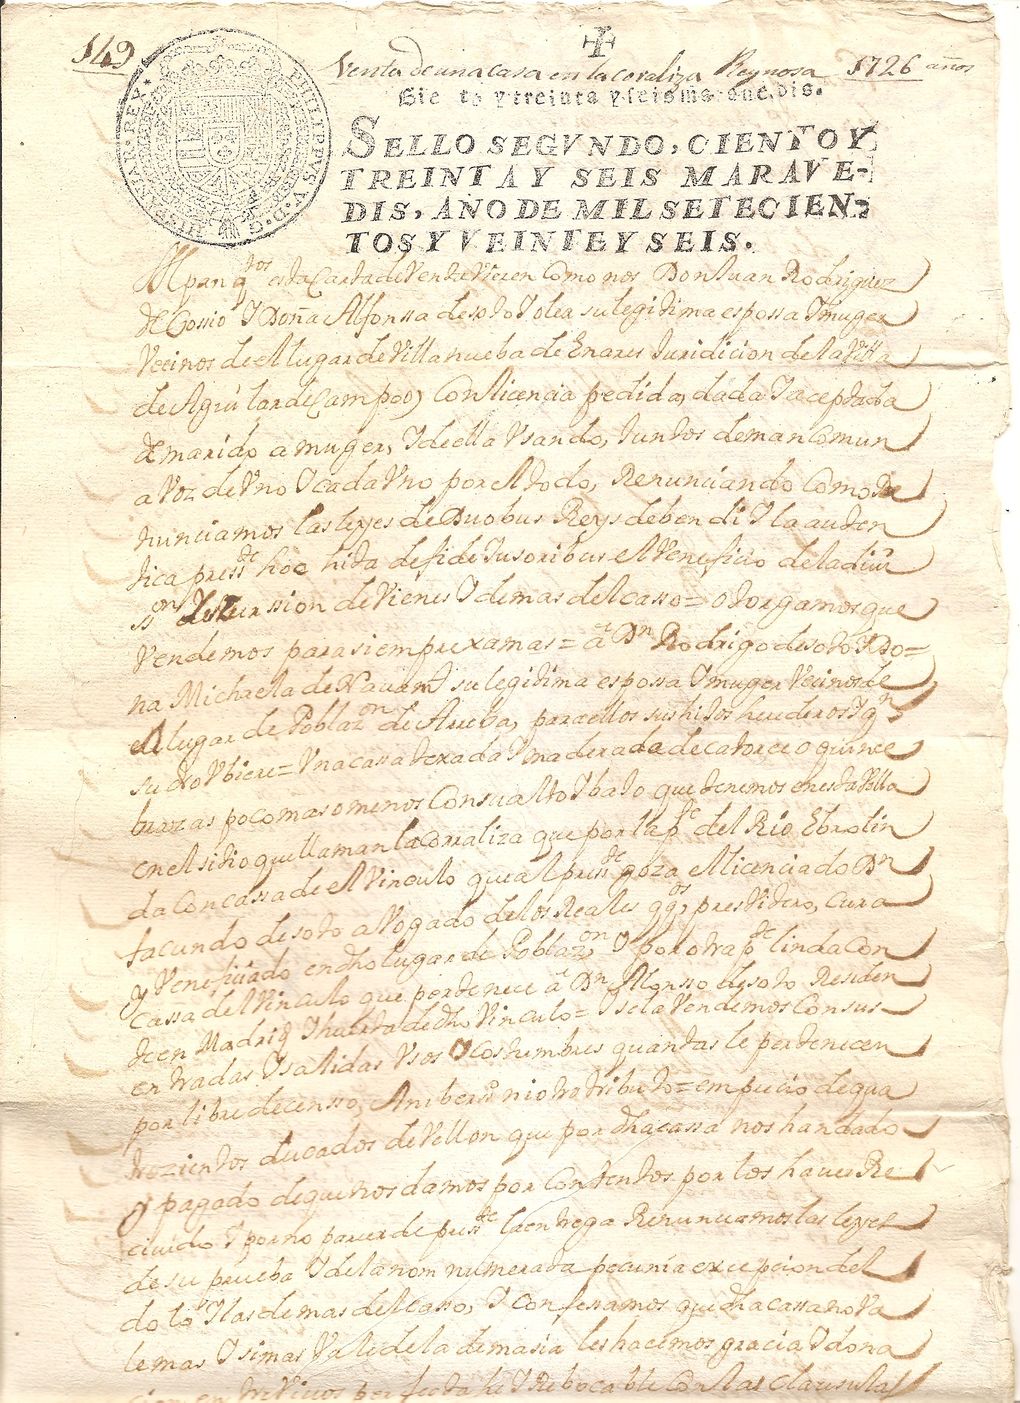 149
Venta de una casa en la coraliza Reynosa 1726 años
PHILIPPVS V. D. G. HISPANIAR. REX.
Sie to y treinta y seis ms. que. dis.
SELLO SEGVNDO, CIENTO Y
TREINTA Y SEIS MARAVE-
DIS, AÑO DE MIL SETECIEN-
TOS Y VEINTE Y SEIS.
esta Carta de Venta Vieren Como nos Don Juan Rodriguez
de Cossio Y Doña Alfonssa de soto Y olea su legitima espossa Y muger
Vecinos de el lugar de Villanueba de Enares Juridicion de la Villa
de Aguilar de Campoo, Con licencia pedida, dada Y aceptada
de marido a muger, Y de ella Vsando, Juntos de man Comun
a Voz de Vno Y cada Vno por el todo, Renunciando Como Re
nunciamos las leyes de Duobus Reys debendi Y la auten
tica press.te hoc hita de fide Jusoribus el Veneficio de la diui
ss.on Escurssion de Vienes Y demas del casso = otorgamos que
Vendemos para siempre xamas = a D.n Rodrigo de soto Y Do=
ña Michaela de Navam.l su legitima espossa Y muger Vecinos de
el lugar de Poblaz.on de Arriba, para ellos sus hijos herederos Y q.n
su dro Vbiere = Vna cassa texada Y maderada de catorce o quince
brazas poco mas o menos Con su alto Y bajo que tenemos en esta Villa
en el sitio que llaman la Corraliza que por la p.te del Rio Ebro lin
da Con cassa de el Vinculo que al press.te goza el licenciado D.n
facundo de soto aVogado de los Reales qq.os, presVitero, Cura
y Veneficiado en dho lugar de Poblaz.on Y por otra p.te linda Con
Cassa del Vinculo que pertenece a D.n Alonsso de soto Residen
te en Madrid Y huerta de dho Vinculo = Y se la Vendemos Con sus
entradas Y salidas Vsos Y Costumbres quantas le pertenecen
por libre de censso, Aniberss.o ni otro tributo = em precio de qua
trozientos ducados de Vellon que por dha cassa nos han dado
y pagado de que nos damos por Contentos por los haver Re
civido Y por no parecer de press.te la entrega Renunciamos las leyes
de su prueba Y de la nom numerada pecunia excepcion del
dolo Y las demas del casso, Y Confessamos que dha cassa no Va
le mas Y si mas Vale de la demasia les hacemos gracia Y dona
cion entre Vivos perfecta he YReBocable Con las clausulas